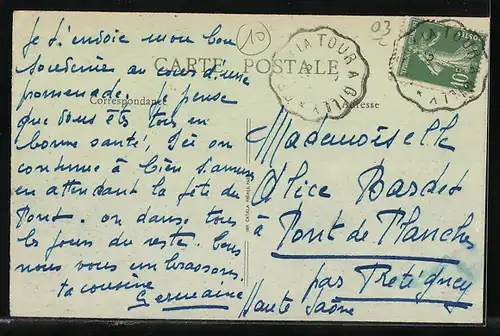 10
03
CARTE POSTALE
Correspondance
Adresse
LA TOUR A GILLEY
Je t'envoie mon bon
souvenir au cours d'une
promenade. Je pense
que vous êtes tous en
bonne santé, Ici on
continue à bien s'amuser
en attendant la fête du
Pont. on danse tous
les jours du reste. Tous
nous vous embrassons.
ta cousine
Germaine
Mademoiselle
Alice Bardet
à Pont de Planches
par Fretigney
Haute Saône